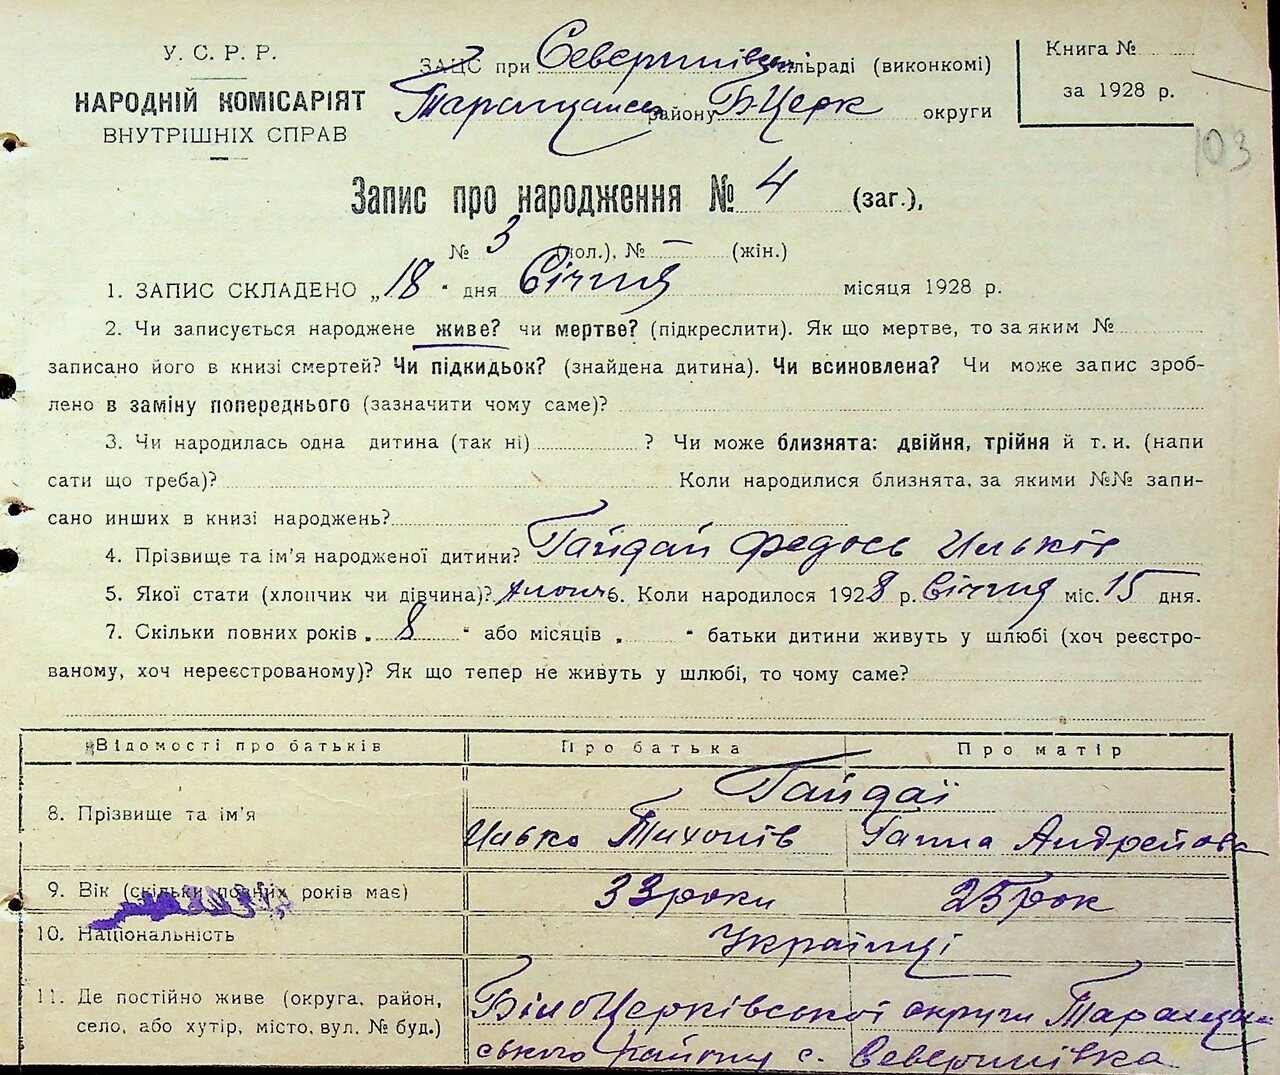 У. С. Р. Р.
НАРОДНІЙ КОМІСАРІЯТ
ВНУТРІШНІХ СПРАВ
ЗАЦС при Северинівськ сільраді (виконкомі)
Таращанськ району Б-Церк округи
Книга №
за 1928 р.
103
Запис про народження № 4 (заг.),
№ 3 (чол.), № — (жін.)
1. ЗАПИС СКЛАДЕНО „18“ дня Січня місяця 1928 р.
2. Чи записується народжене живе? чи мертве? (підкреслити). Як що мертве, то за яким №
записано його в книзі смертей? Чи підкидьок? (знайдена дитина). Чи всиновлена? Чи може запис зроб-
лено в заміну попереднього (зазначити чому саме)?
3. Чи народилась одна дитина (так ні) ? Чи може близнята: двійня, трійня й т. и. (напи
сати що треба)? Коли народилися близнята, за якими №№ запи-
сано инших в книзі народжень?
4. Прізвище та ім'я народженої дитини? Гайдай Федось Ильків
5. Якої стати (хлопчик чи дівчина)? хлопч 6. Коли народилося 1928 р. Січня міс. 15 дня.
7. Скільки повних років „ 8 “ або місяців „ “ батьки дитини живуть у шлюбі (хоч реєстро-
ваному, хоч нереєстрованому)? Як що тепер не живуть у шлюбі, то чому саме?
Відомості про батьків Про батька Про матір
8. Прізвище та ім'я Гайдаї
Илько Тихонів Ганна Андрейова
9. Вік (скільки повних років має) 33 роки 25 рок
10. Національність Українці
11. Де постійно живе (округа, район,
село, або хутір, місто, вул. № буд.)
БілоЦерківської округи Таращан
ського району с. Северинівка